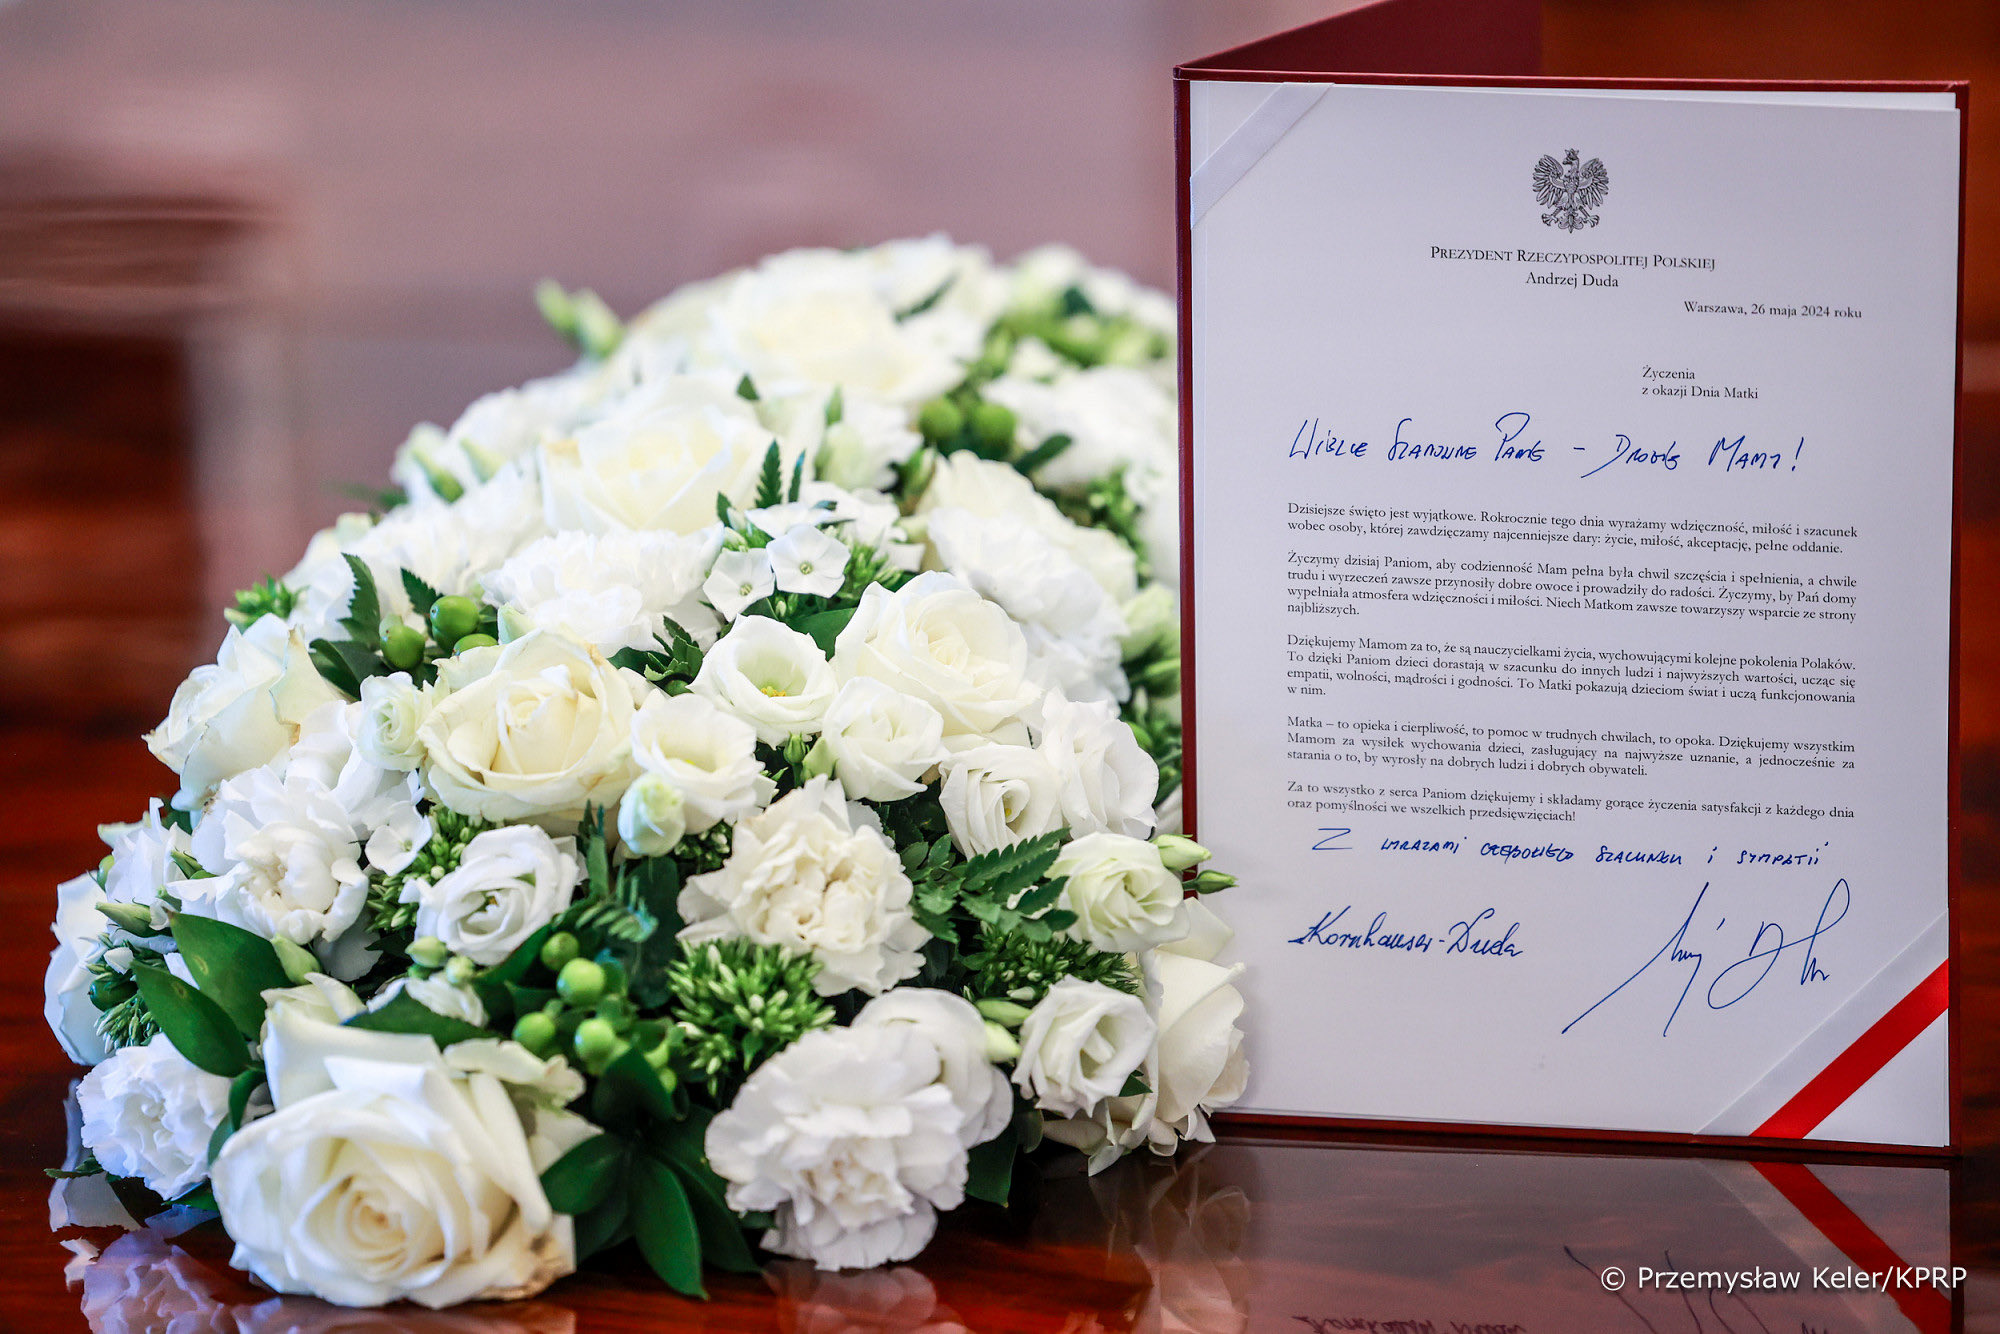 PREZYDENT RZECZYPOSPOLITEJ POLSKIEJ
Andrzej Duda
Warszawa, 26 maja 2024 roku
Życzenia
z okazji Dnia Matki
WIELCE SZANOWNE PANIE – DROGIE MAMY!
Dzisiejsze święto jest wyjątkowe. Rokrocznie tego dnia wyrażamy wdzięczność, miłość i szacunek
wobec osoby, której zawdzięczamy najcenniejsze dary: życie, miłość, akceptację, pełne oddanie.
Życzymy dzisiaj Paniom, aby codzienność Mam pełna była chwil szczęścia i spełnienia, a chwile
trudu i wyrzeczeń zawsze przynosiły dobre owoce i prowadziły do radości. Życzymy, by Pań domy
wypełniała atmosfera wdzięczności i miłości. Niech Matkom zawsze towarzyszy wsparcie ze strony
najbliższych.
Dziękujemy Mamom za to, że są nauczycielkami życia, wychowującymi kolejne pokolenia Polaków.
To dzięki Paniom dzieci dorastają w szacunku do innych ludzi i najwyższych wartości, ucząc się
empatii, wolności, mądrości i godności. To Matki pokazują dzieciom świat i uczą funkcjonowania
w nim.
Matka – to opieka i cierpliwość, to pomoc w trudnych chwilach, to opoka. Dziękujemy wszystkim
Mamom za wysiłek wychowania dzieci, zasługujący na najwyższe uznanie, a jednocześnie za
starania o to, by wyrosły na dobrych ludzi i dobrych obywateli.
Za to wszystko z serca Paniom dziękujemy i składamy gorące życzenia satysfakcji z każdego dnia
oraz pomyślności we wszelkich przedsięwzięciach!
Z WYRAZAMI GŁĘBOKIEGO SZACUNKU I SYMPATII
Kornhauser-Duda
© Przemysław Keler/KPRP